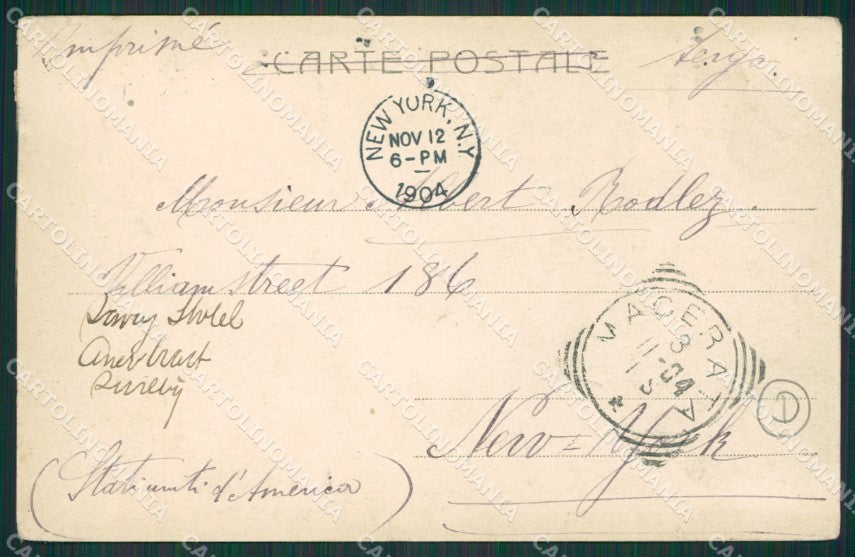 Imprimé
CARTE POSTALE
NEW YORK, N.Y.
NOV 12
6-PM
1904
Monsieur Albert Rodlez.
William street 186
Savoy Hotel
MACERATA
11-04
New=York
D
(Stati uniti d'America)
CARTOLINOMANIA